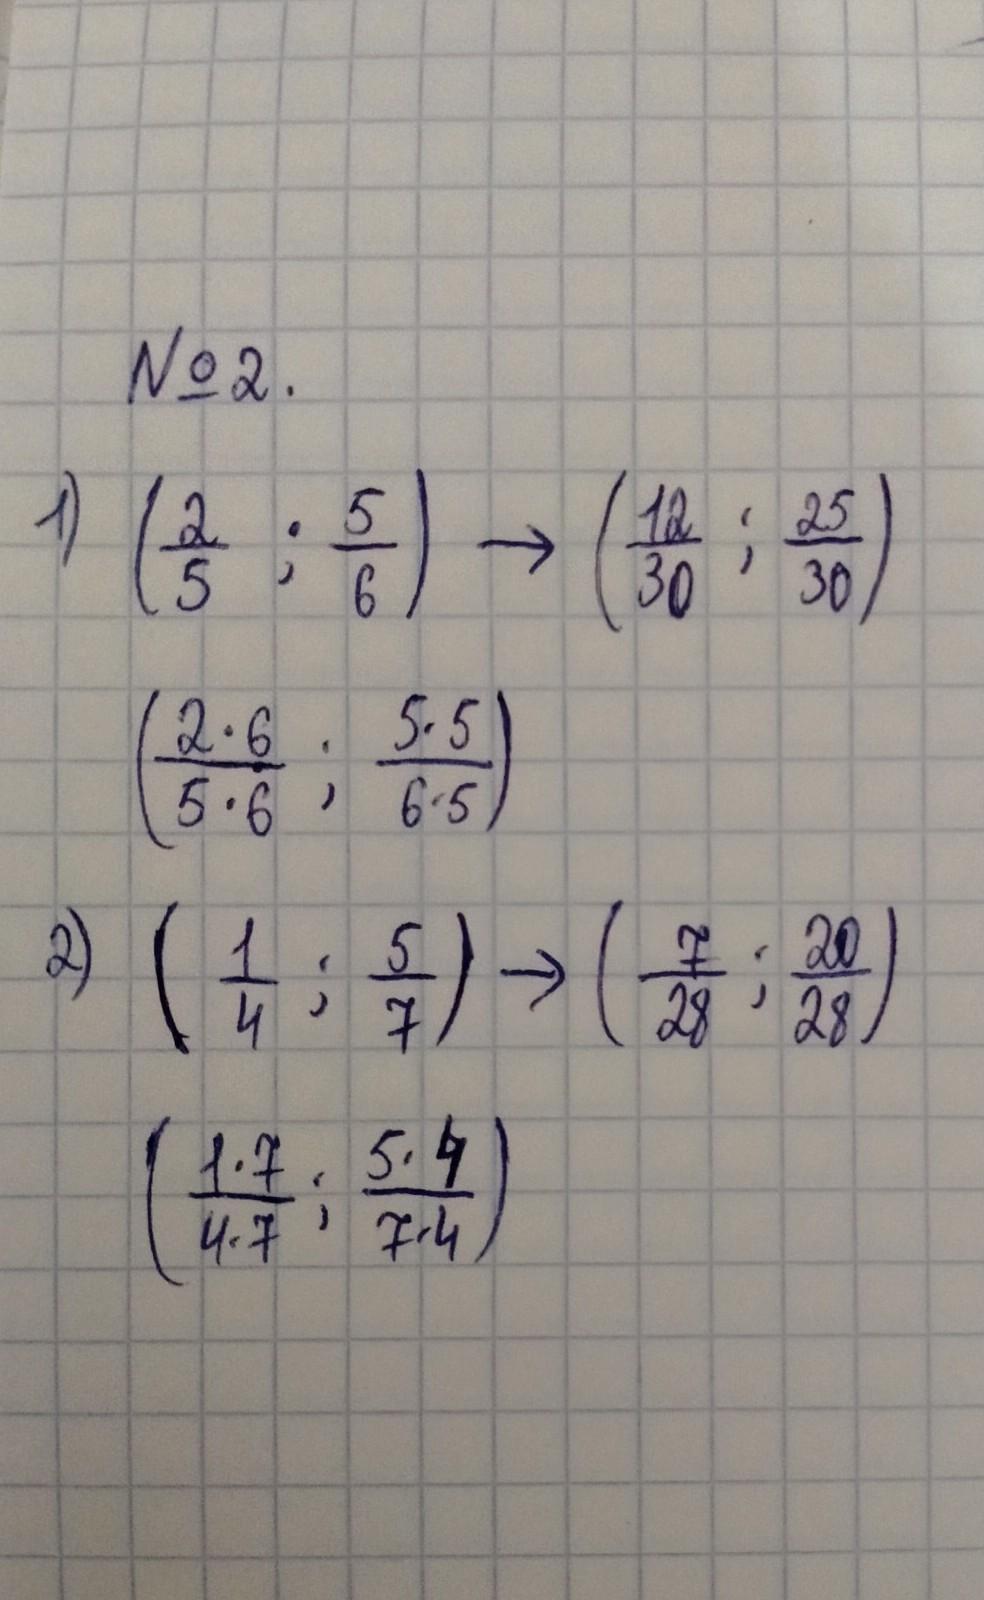 №2.
1) (2/5 ; 5/6) → (12/30 ; 25/30)
(2·6/5·6 ; 5·5/6·5)
2) (1/4 ; 5/7) → (7/28 ; 20/28)
(1·7/4·7 ; 5·4/7·4)